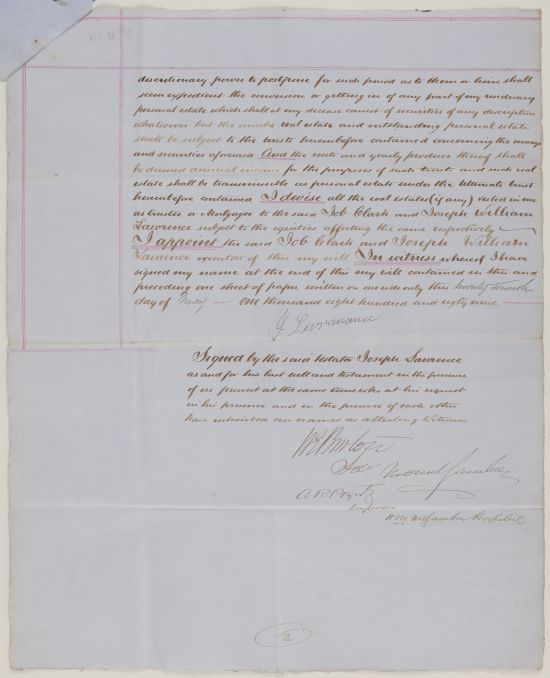 discretionary power to postpone for such period as to them or him shall
seem expedient the conversion or getting in of any part of my residuary
personal estate which shall at my decease consist of securities of any description
whatsoever but the unsold real estate and outstanding personal estate
shall be subject to the trusts hereinbefore contained concerning the moneys
and securities aforesaid And the rents and yearly produce thereof shall
be deemed annual income for the purposes of such trusts and such real
estate shall be transmissible as personal estate under the ultimate trust
hereinbefore contained I devise all the real estates (if any) vested in me
as trustee or Mortgagee to the said Job Clark and Joseph William
Lawrence subject to the equities affecting the same respectively
I appoint the said Job Clark and Joseph William
Lawrence executors of this my will In witness whereof I have
signed my name at the end of this my will contained in this and
preceding one sheet of paper written on one side only this twenty seventh
day of May one thousand eight hundred and sixty nine
J Lawrance
Signed by the said testator Joseph Lawrence
as and for his last will and testament in the presence
of us present at the same time who at his request
in his presence and in the presence of each other
have subscribed our names as attesting witnesses
Hospital
2